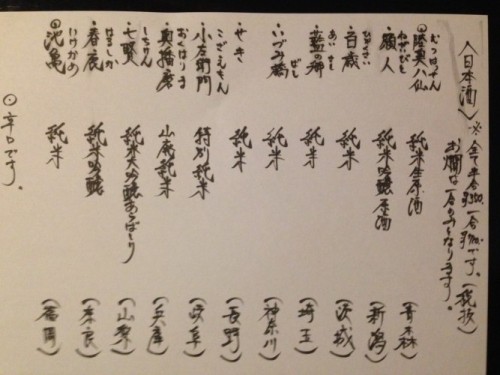 〈日本酒〉※全て半合 一合 です。(税抜)
お燗は一合のみとなります。
◎陸奥八仙 むつはっせん 純米生原酒 (青森)
・願人 純米吟醸原酒 (新潟)
・百歳 純米 (茨城)
・藍の郷 あいのさと 純米 (埼玉)
・いづみ橋 ばし 純米 (神奈川)
・せき 純米 (長野)
・小左衛門 こざえもん 特別純米 (岐阜)
・奥播磨 おくはりま 山廃純米 (兵庫)
・七賢 しちけん 純米大吟醸あらばしり (山梨)
・春鹿 はるしか 純米吟醸 (奈良)
◎池亀 いけかめ 純米 (福岡)
◎辛口です。